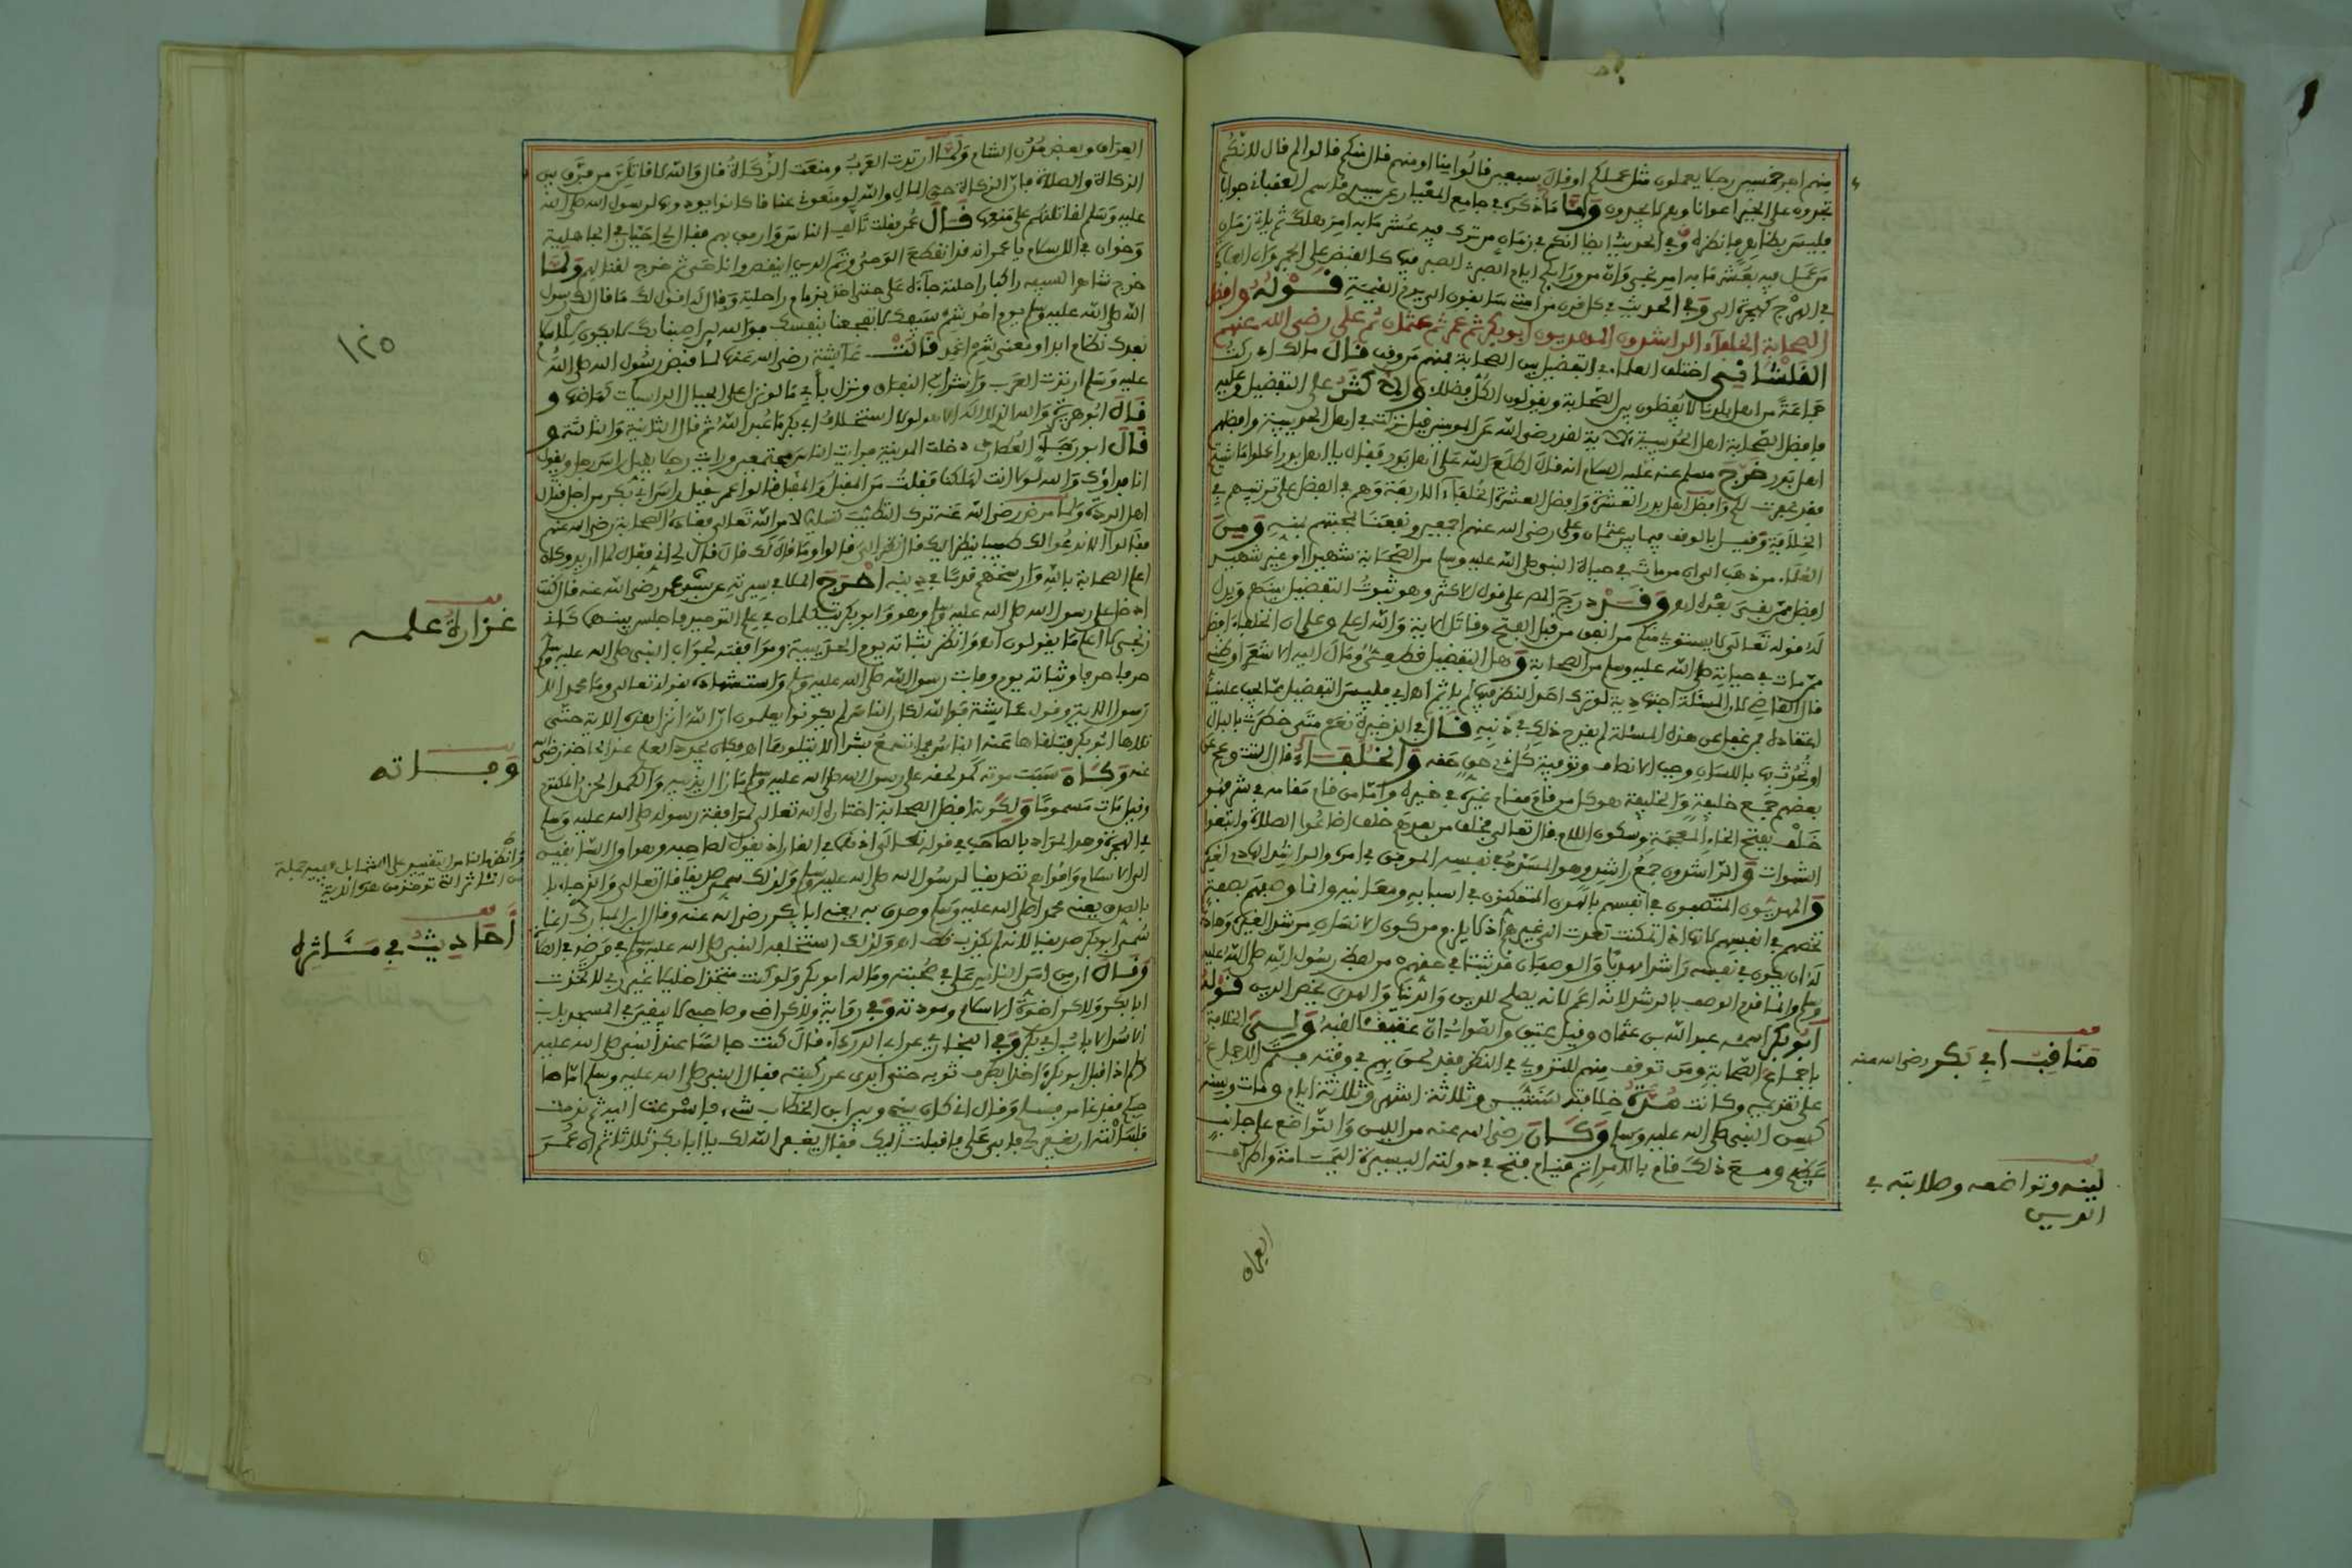 منهم اجر خمسين رجلا يعملون مثل عملكم او قال سبعين قالوا منا او منهم قال منكم قالوا لم قال لانكم
تجدون على الخير اعوانا وهم لا يجدون وَأما ما ذكره في جامع المعيار
فليس بظاهر وفي الحديث ايضا انكم في زمان من ترك فيه عشر ما به امر هلك ثم ياتي زمان
من عمل فيه بعشر ما به امر نجى وان من ورائكم ايام الصبر الصبر فيهن كالقبض على الجمر
في الهرج كهجرة الي وفي الحديث في كل قرن من امتي سابقون الى يوم القيمة قوله وافضل
الصحابة الخلفاء الراشدون المهديون ابو بكر ثم عمر ثم عثمان ثم علي رضي الله عنهم
القلشاني اختلف العلماء في التفضيل بين الصحابة فمنهم من وقف قال مالك ادركت
جماعة من اهل بلدنا لا يفضلون بين الصحابة ويقولون الكل فضلاء والاكثر على التفضيل وعليه
فافضل الصحابة اهل الحديبية الاية لقد رضي الله عن المومنين قيل نزلت في اهل الحديبية وافضلهم
اهل بدر خرج مسلم عنه عليه السلام انه قال اطلع الله على اهل بدر فقال يا اهل بدر اعملوا ما شيتم
فقد غفرت لكم وافضل اهل بدر العشرة وافضل العشرة الخلفاء الاربعة وهم في الفضل على ترتيبهم في
الخلافة وقيل بالوقف فيما بين عثمان وعلي رضي الله عنهم اجمعين ونفعنا بمحبتهم بمنه ومن
العلماء من ذهب الى ان من مات في حياة النبي صلى الله عليه وسلم من الصحابة شهيدا او غير شهيد
افضل ممن بقي بعده اهـ وقد درج المص على قول الاكثر وهو ثبوت التفضيل بينهم ويدل
له قوله تعالى لا يستوي منكم من انفق من قبل الفتح وقاتل الاية والله اعلم وعلى ان الخلفاء افضل
ممن مات في حياته صلى الله عليه وسلم من الصحابة وهل التفضيل قطعي ومال اليه الاشعري او ظني
قال القاضي لان المسئلة اجتهادية لو ترك احد النظر فيها لم ياثم اهـ اي فليس التفضيل مما يجب علينا
اعتقاده فمن غفل عن هذه المسئلة لم يقدح ذلك في دينه قال في الذخيرة نعم متى خطرت بالبال
او تحدث بها باللسان وجب الانصاف وتوفية كل ذي حق حقه والخلفاء قال التتاءي عن
بعضهم جمع خليفة والخليفة هو كل من قام مقام غيره في خيره واما من قام مقامه في شر فهو
خلف بفتح الخاء المعجمة وسكون اللام قال تعالى فخلف من بعدهم خلف اضاعوا الصلاة واتبعوا
الشهوات والراشدون جمع راشد وهو المسدد في نفسه الموفق في امره والراشد الهادي لغيره
والمهديون المتصفون في انفسهم بالهدى المتمكنون في اسبابه ومعانيه وانما وصفهم بصفة
تخصهم في انفسهم لانها اذا تمكنت تعدت الى غيرهم
له ان يكون في نفسه راشدا مهديا والوصفان قد ثبتا في حقهم من لفظ رسول الله صلى الله عليه
وسلم وانما قدم الوصف بالرشد لانه اعم لانه يصلح للدين والدنيا والهدى يخص الدين قوله
ابو بكر اسمه عبد الله بن عثمان وقيل عتيق والصواب ان عتيقا لقبه ولي الخلافة
باجماع الصحابة ومن توقف منهم للتروي في النظر فقد لحق بهم في وقته فتم الاجماع
على تقديمه وكانت مدة خلافته سنتين وثلاثة اشهر وثلاثة ايام ومات وسنه
كسن النبي صلى الله عليه وسلم وكان رضي الله عنه من اللين والتواضع على جانب
عظيم ومع ذلك قام بالامر اتم قيام فتح في دولته اليسيرة اليمامة واطراف
مناقب ابي بكر رضي الله عنه
لينه وتواضعه وصلابته في
الدين
العراق
العراق وبعض مدن الشام ولما ارتدت العرب ومنعت الزكاة قال والله لاقاتلن من فرق بين
الزكاة والصلاة فان الزكاة حق المال والله لو منعوني عناقا كانوا يودونها لرسول الله صلى الله
عليه وسلم لقاتلتهم على منعها قال عمر فقلت تالف الناس وارفق بهم فقال لي اجبار في الجاهلية
وخوار في الاسلام يا عمر انه قد انقطع الوحي وتم الدين اينقص وانا حي ثم خرج لقتالهم ولما
خرج شاهرا لسيفه راكبا راحلته جاءه علي حتى اخذ بزمام راحلته وقال له اقول لك ما قال لك رسول
الله صلى الله عليه وسلم يوم احد شم سيفك لا تفجعنا بنفسك فوالله لين اصبنا بك لا يكون للاسلام
بعدك نظام ابدا ومعنى شم اغمد قالت عائشة رضي الله عنها لما قبض رسول الله صلى الله
عليه وسلم ارتدت العرب واشراب النفاق ونزل بابي ما لو نزل على الجبال الراسيات لهاضها و
قال ابو هريرة والله الذي لا اله الا هو لولا استخلاف ابي بكر ما عبد الله ثم قال الثانية والثالثة و
قال ابو رجاء العطاردي دخلت المدينة فرايت الناس مجتمعين ورايت رجلا يقبل راس رجل ويقول
انا فداؤك والله لولا انت لهلكنا فقلت من المقبل والمقبل قالوا عمر يقبل راس ابي بكر من اجل قتال
اهل الردة ولما مرض رضي الله عنه ترك التطبب تسليما لامر الله تعالى فعاده الصحابة رضي الله عنهم
فقالوا الا ندعوا لك طبيبا ينظر اليك قال نظر الي قالوا وما قال لك قال قال لي اني فعال لما اريد وكان
اعلم الصحابة بالله وارسخهم قدما في دينه اخرج الملا في سيرته عن عمر رضي الله عنه قال كنت
ادخل على رسول الله صلى الله عليه وسلم وهو وابو بكر يتكلمان في علم التوحيد فاجلس بينهما كاني
زنجي لا اعلم ما يقولون اهـ وانظر ثباته يوم الحديبية وموافقته لجواب النبي صلى الله عليه وسلم
حرفا حرفا وثباته يوم وفات رسول الله صلى الله عليه وسلم واستشهاده بقوله تعالى وما محمد الا
رسول الاية وقول عايشة فوالله لكان الناس لم يكونوا يعلمون ان الله انزل هذه الاية حتى
تلاها ابو بكر فتلقاها عنه الناس فما نسمع بشرا الا يتلوها اهـ
عنه وكان سبب موته كمد لحقه على رسول الله صلى الله عليه وسلم ما زال يذيبه والكمد الحزن المكتوم
وقيل مات مسموما ولكونه افضل الصحابة اختاره الله تعالى لمرافقة رسوله صلى الله عليه وسلم
في الهجرة وهو المراد بالصاحب في قوله تعالى اذ هما في الغار اذ يقول لصاحبه وهو اول السابقين
الى الاسلام واقواهم تصديقا لرسول الله صلى الله عليه وسلم ولذلك سمي صديقا قال تعالى والذي جاء
بالصدق يعني محمد صلى الله عليه وسلم وصدق به يعني ابا بكر رضي الله عنه وقال ابن المبارك انما
سمي ابو بكر صديقا لانه لم يكذب قط اهـ ولذلك استخلفه النبي صلى الله عليه وسلم في مرضه في الصلاة
وقال ان من امن الناس علي في صحبته وماله ابو بكر ولو كنت متخذا خليلا غير ربي لاتخذت
ابا بكر ولكن اخوة الاسلام ومودته وفي رواية ولكن اخي وصاحبي لا يبقين في المسجد باب
الا سد الا باب ابي بكر وفي البخاري عن ابي الدرداء قال كنت جالسا عند النبي صلى الله عليه
وسلم اذ اقبل ابو بكر اخذا بطرف ثوبه حتى ابدى عن ركبته فقال النبي صلى الله عليه وسلم اما صا
حبكم فقد غامر فسلم وقال اني كان بيني وبين ابن الخطاب شيء فاسرعت اليه ثم ندمت
فسالته ان يغفر لي فابى علي فاقبلت اليك فقال يغفر الله لك يا ابا بكر ثلاثا ثم ان عمر
١٢٥
غزارة علمه
وفاته
احاديث في مئاثره